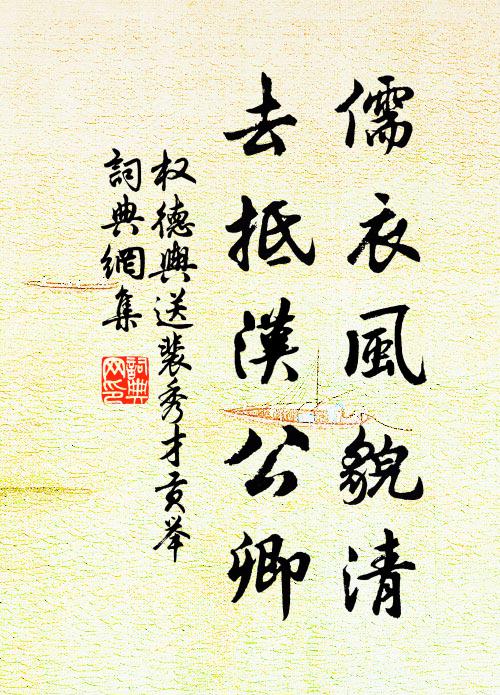 儒衣風貌清
去抵漢公卿
权德輿送裴秀才贡举
詞典網集
詞典网印